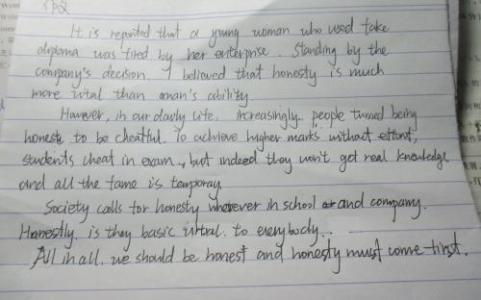 P2
It is reported that a young woman who used fake
diploma was fired by her enterprise. Standing by the
company's decision, I believed that honesty is much
more vital than oman's ability.
However, in our daily life, increasingly people turned being
honest to be cheatful. To achieve higher marks without effort,
students cheat in exam, but indeed they won't get real knowledge
and all the fame is temporary.
Society calls for honesty wherever in school and company.
Honestly is they basic virtral to everybody..
All in all, we should be honest and honesty must come first.